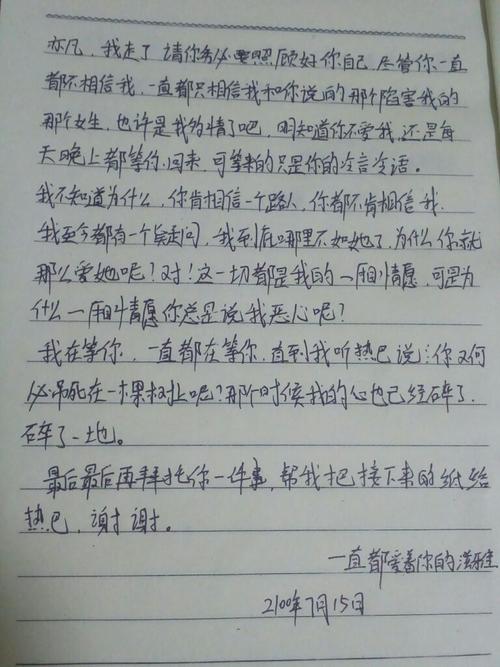 亦凡，我走了 请你务必要照顾好你自己，尽管你一直
都不相信我，一直都只相信我和你说的那个陷害我的
那个女生，也许是我的错了吧，明知道你不爱我，还是每
天晚上都等你回来，可等来的只是你的冷言冷语。
我不知道为什么，你肯相信一个路人，你都不肯相信我，
我至今都有一个疑问，我到底哪里不如她了，为什么你就
那么爱她呢？对！这一切都是我的一厢情愿，可是为
什么一厢情愿你总是说我恶心呢？
我在等你，一直都在等你，直到我听热巴说：你又何
必吊死在一棵树上呢？那个时候我的心也已经碎了，
碎了一地。
最后最后再拜托你一件事，帮我把接下来的纸给
热巴，谢谢。
一直都爱着你的雅
2100年7月15日